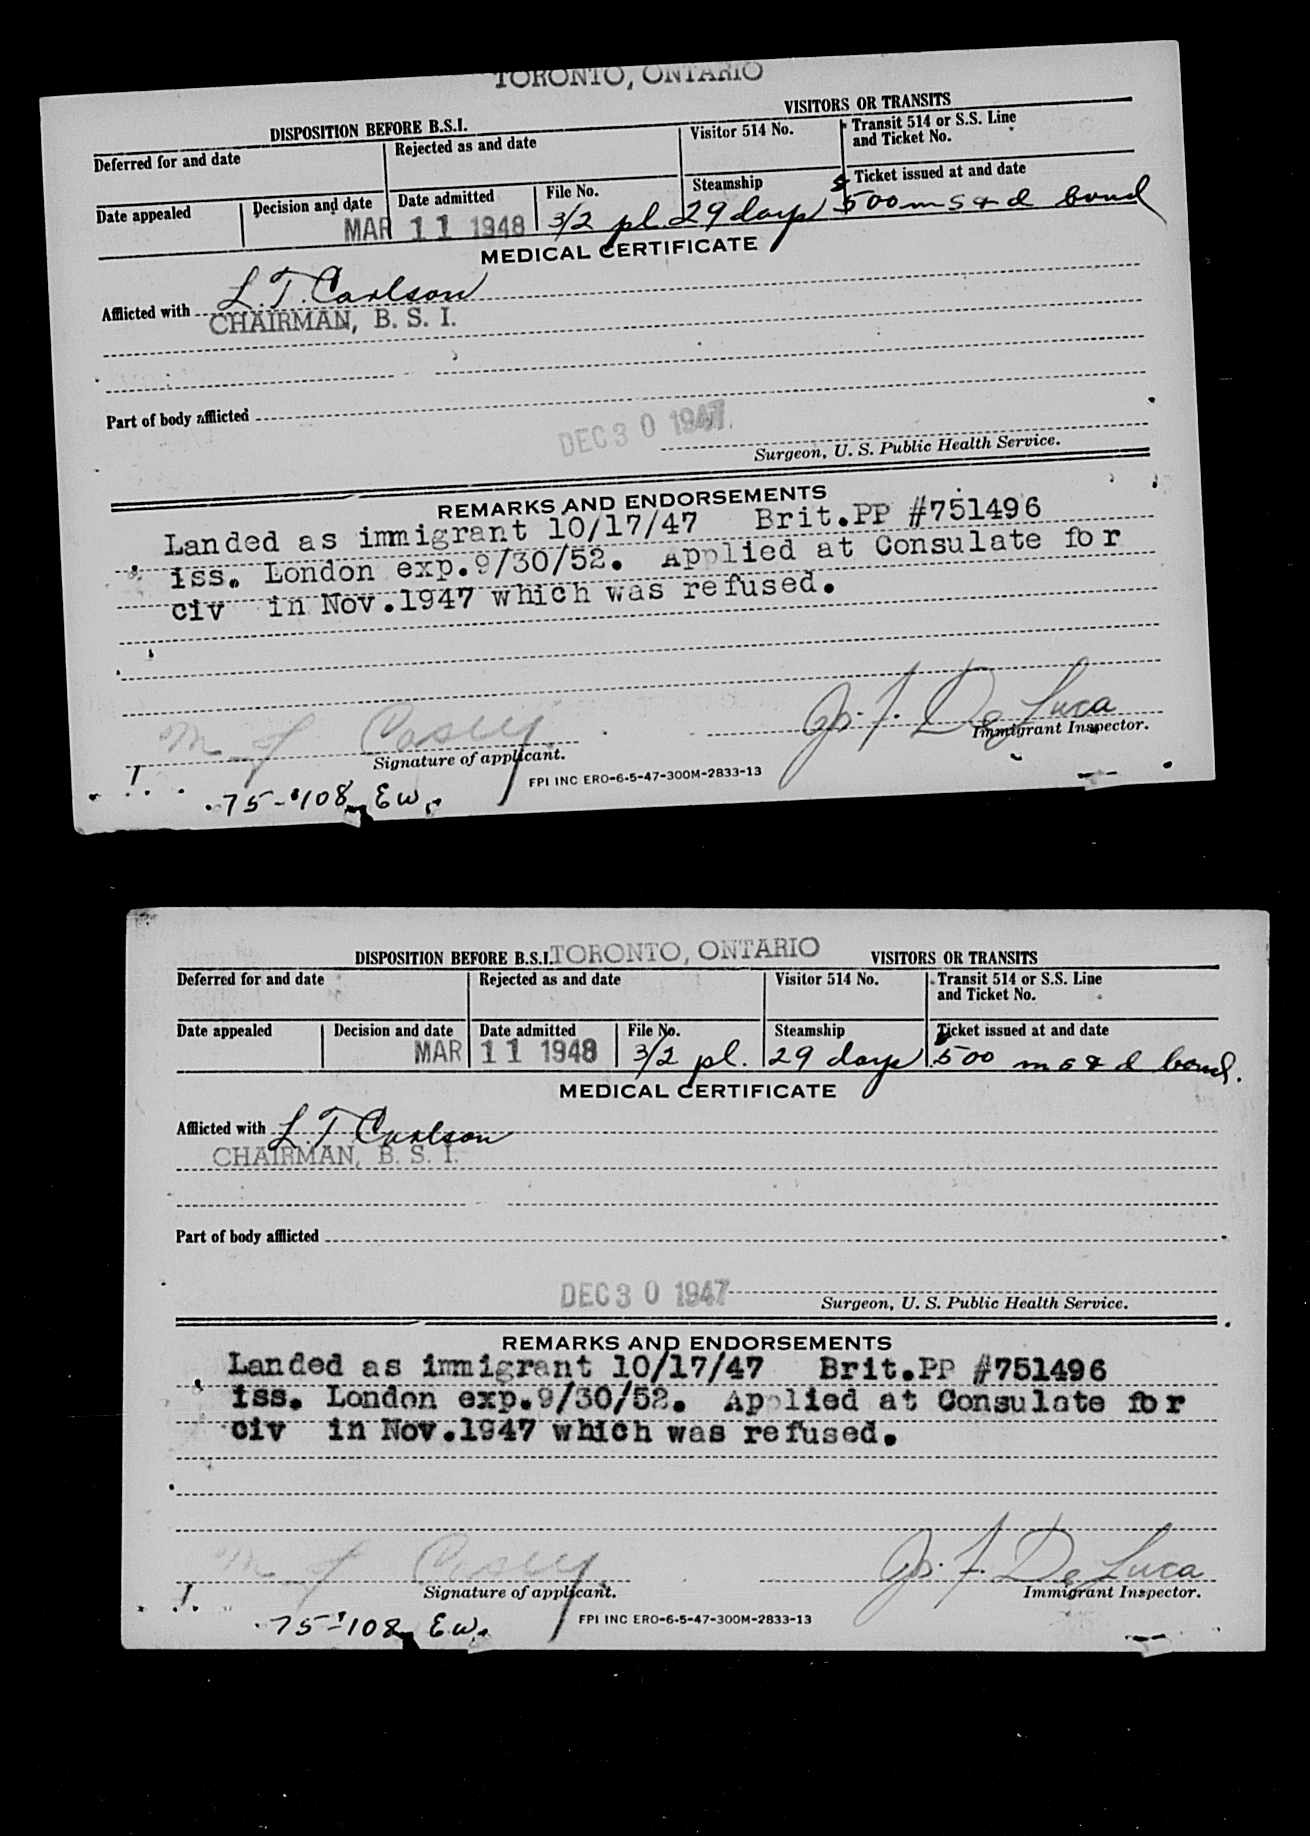 TORONTO, ONTARIO
DISPOSITION BEFORE B.S.I. VISITORS OR TRANSITS
Deferred for and date Rejected as and date Visitor 514 No. Transit 514 or S.S. Line and Ticket No.
Date appealed Decision and date Date admitted File No. Steamship Ticket issued at and date
MAR 11 1948 3/2 pl. 29 days $500 m s & d bond
MEDICAL CERTIFICATE
Afflicted with L. T. Carlson
CHAIRMAN, B. S. I.
Part of body afflicted
DEC 30 1947
Surgeon, U. S. Public Health Service.
REMARKS AND ENDORSEMENTS
Landed as immigrant 10/17/47 Brit.PP #751496
iss. London exp.9/30/52. Applied at Consulate for
civ in Nov.1947 which was refused.
M J Casey Jos. F. De Luca
Signature of applicant. Immigrant Inspector.
75-108 Ew. FPI INC ERO-6-5-47-300M-2833-13
DISPOSITION BEFORE B.S.I. TORONTO, ONTARIO VISITORS OR TRANSITS
Deferred for and date Rejected as and date Visitor 514 No. Transit 514 or S.S. Line and Ticket No.
Date appealed Decision and date Date admitted File No. Steamship Ticket issued at and date
MAR 11 1948 3/2 pl. 29 days $500 m s & d bond.
MEDICAL CERTIFICATE
Afflicted with L. T. Carlson
CHAIRMAN, B. S. I.
Part of body afflicted
DEC 30 1947
Surgeon, U. S. Public Health Service.
REMARKS AND ENDORSEMENTS
Landed as immigrant 10/17/47 Brit.PP #751496
iss. London exp.9/30/52. Applied at Consulate for
civ in Nov.1947 which was refused.
M J Casey Jos. F. De Luca
Signature of applicant. Immigrant Inspector.
75-108 Ew. FPI INC ERO-6-5-47-300M-2833-13